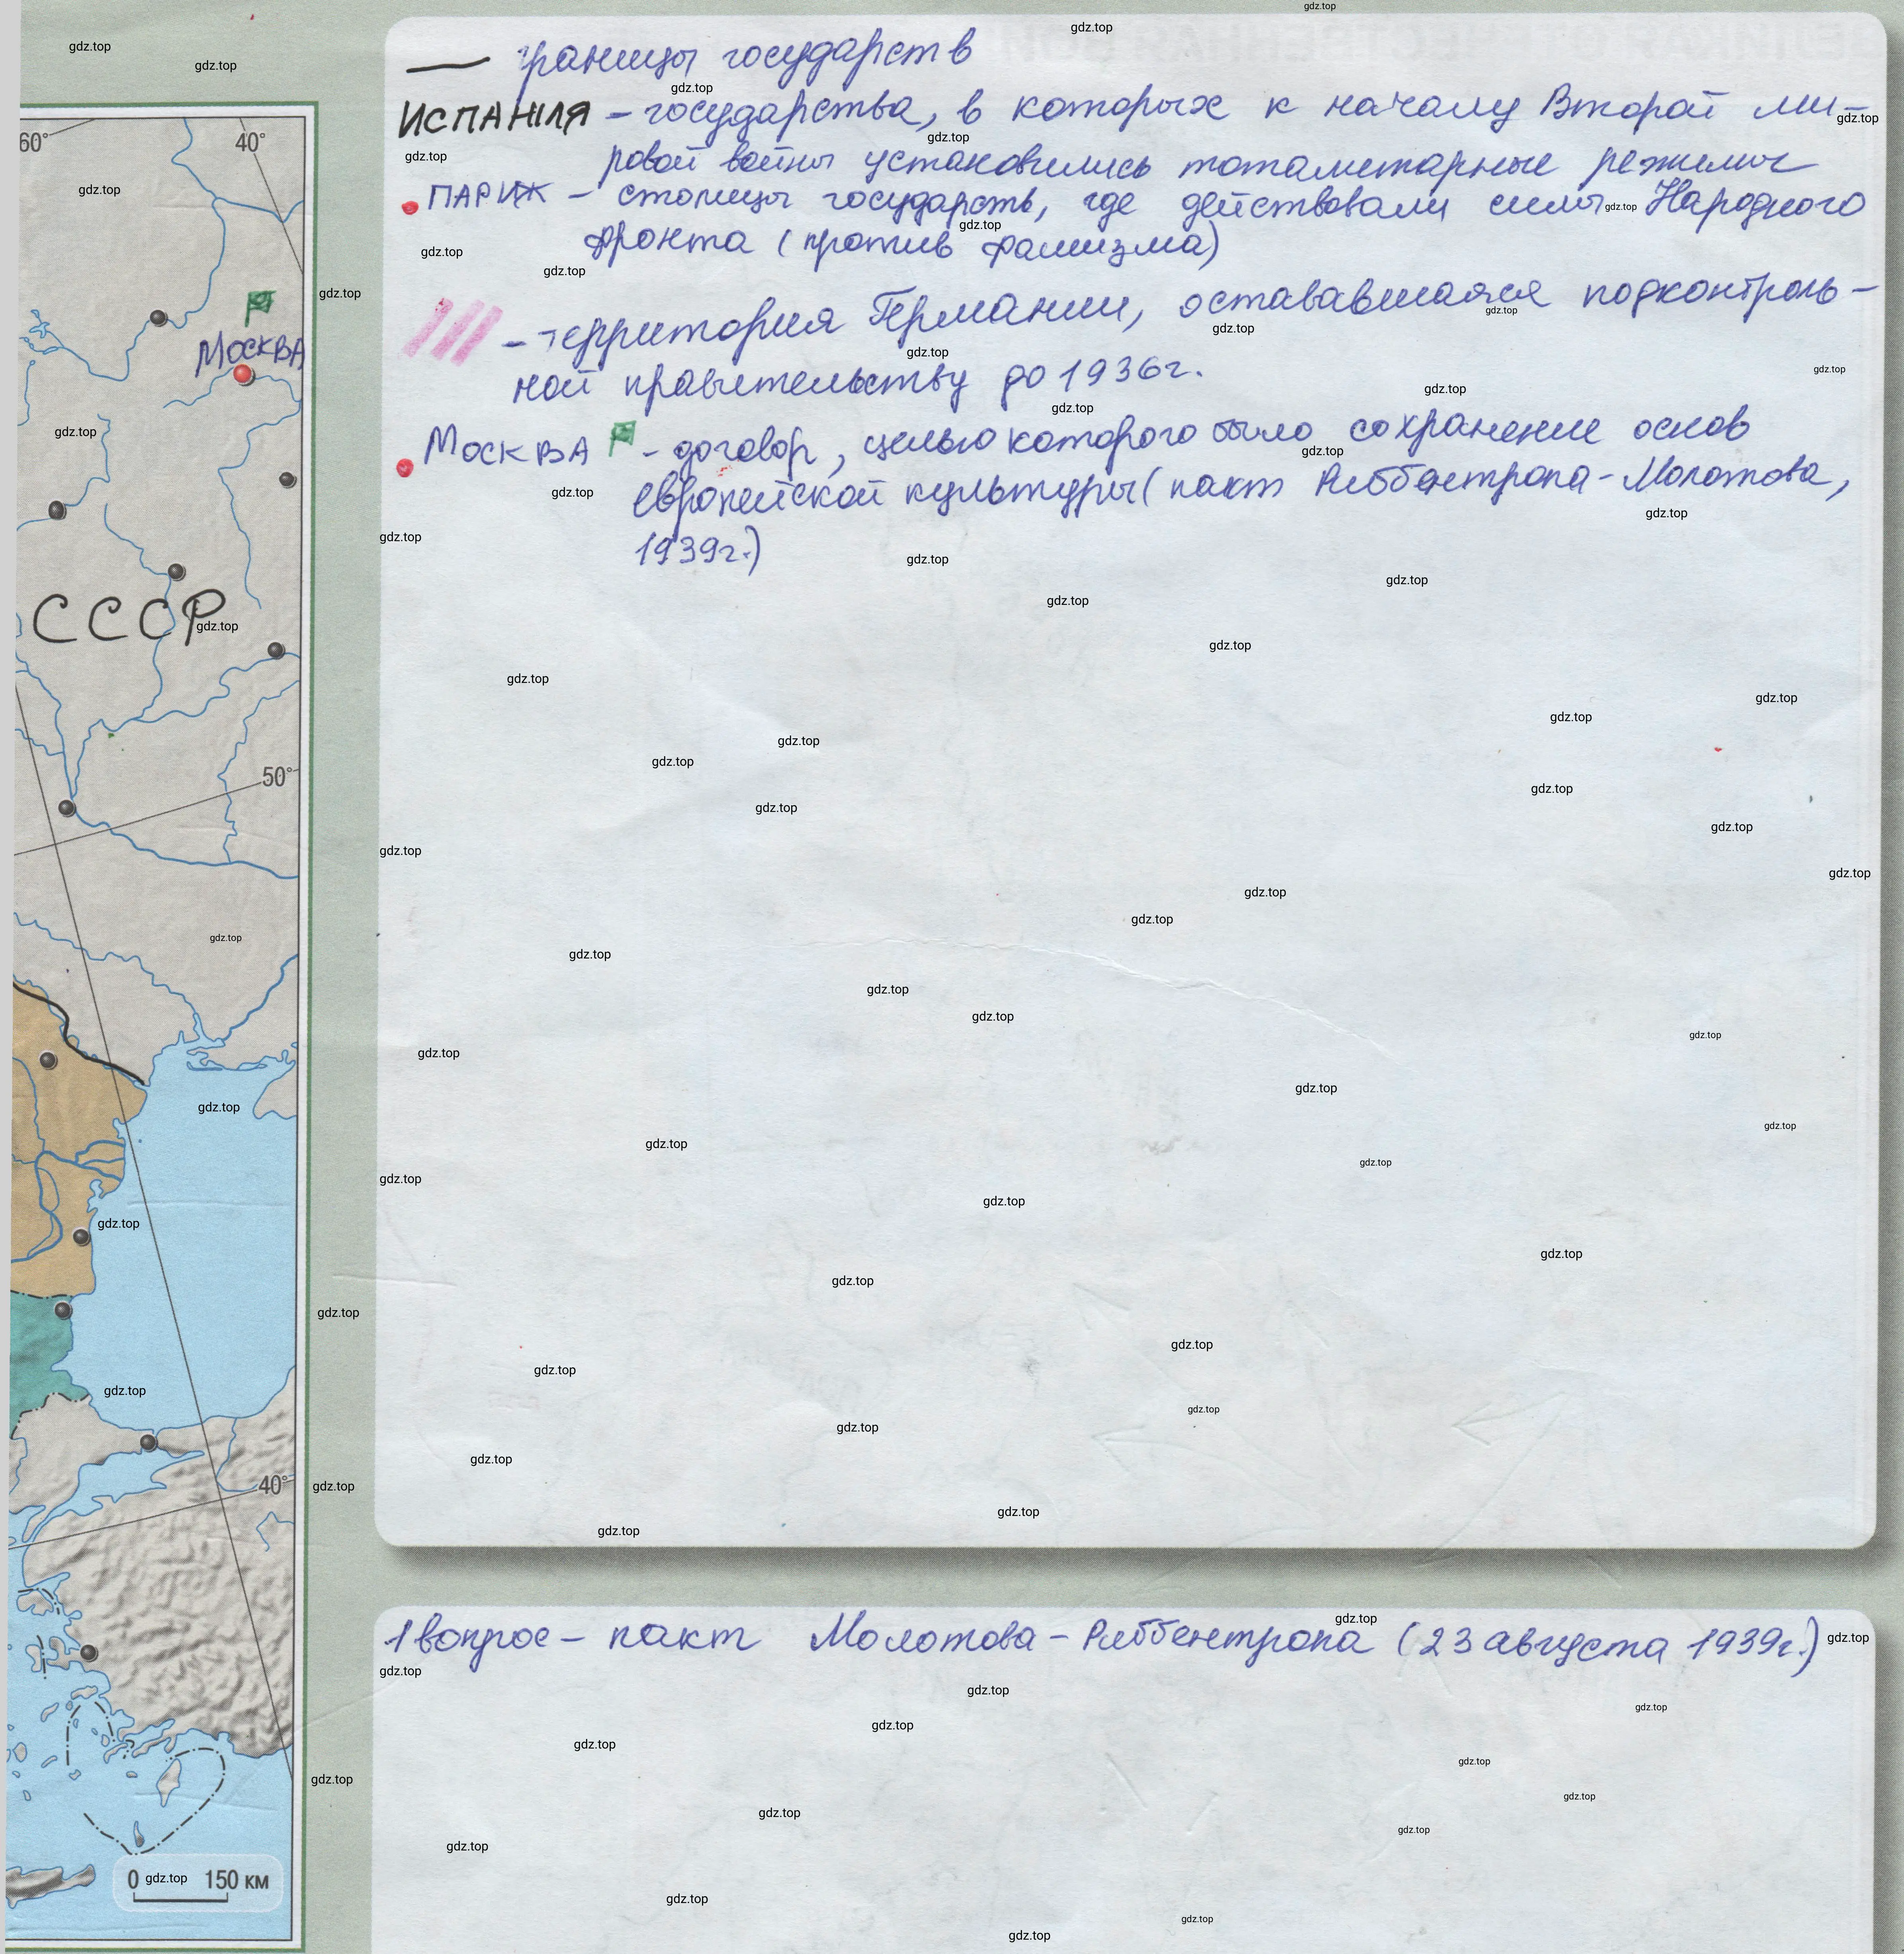 — границы государств
ИСПАНИЯ – государства, в которых к началу Второй ми-
ровой войны установились тоталитарные режимы
ПАРИЖ – столицы государств, где действовали силы Народного
фронта (против фашизма)
– территория Германии, остававшаяся подконтроль-
ной правительству до 1936г.
МОСКВА – договор, целью которого было сохранение основ
европейской культуры (пакт Риббентропа-Молотова,
1939г.)
60°
40°
МОСКВА
СССР
50°
40°
0 150 км
1 вопрос – пакт Молотова-Риббентропа (23 августа 1939г.)
gdz.top